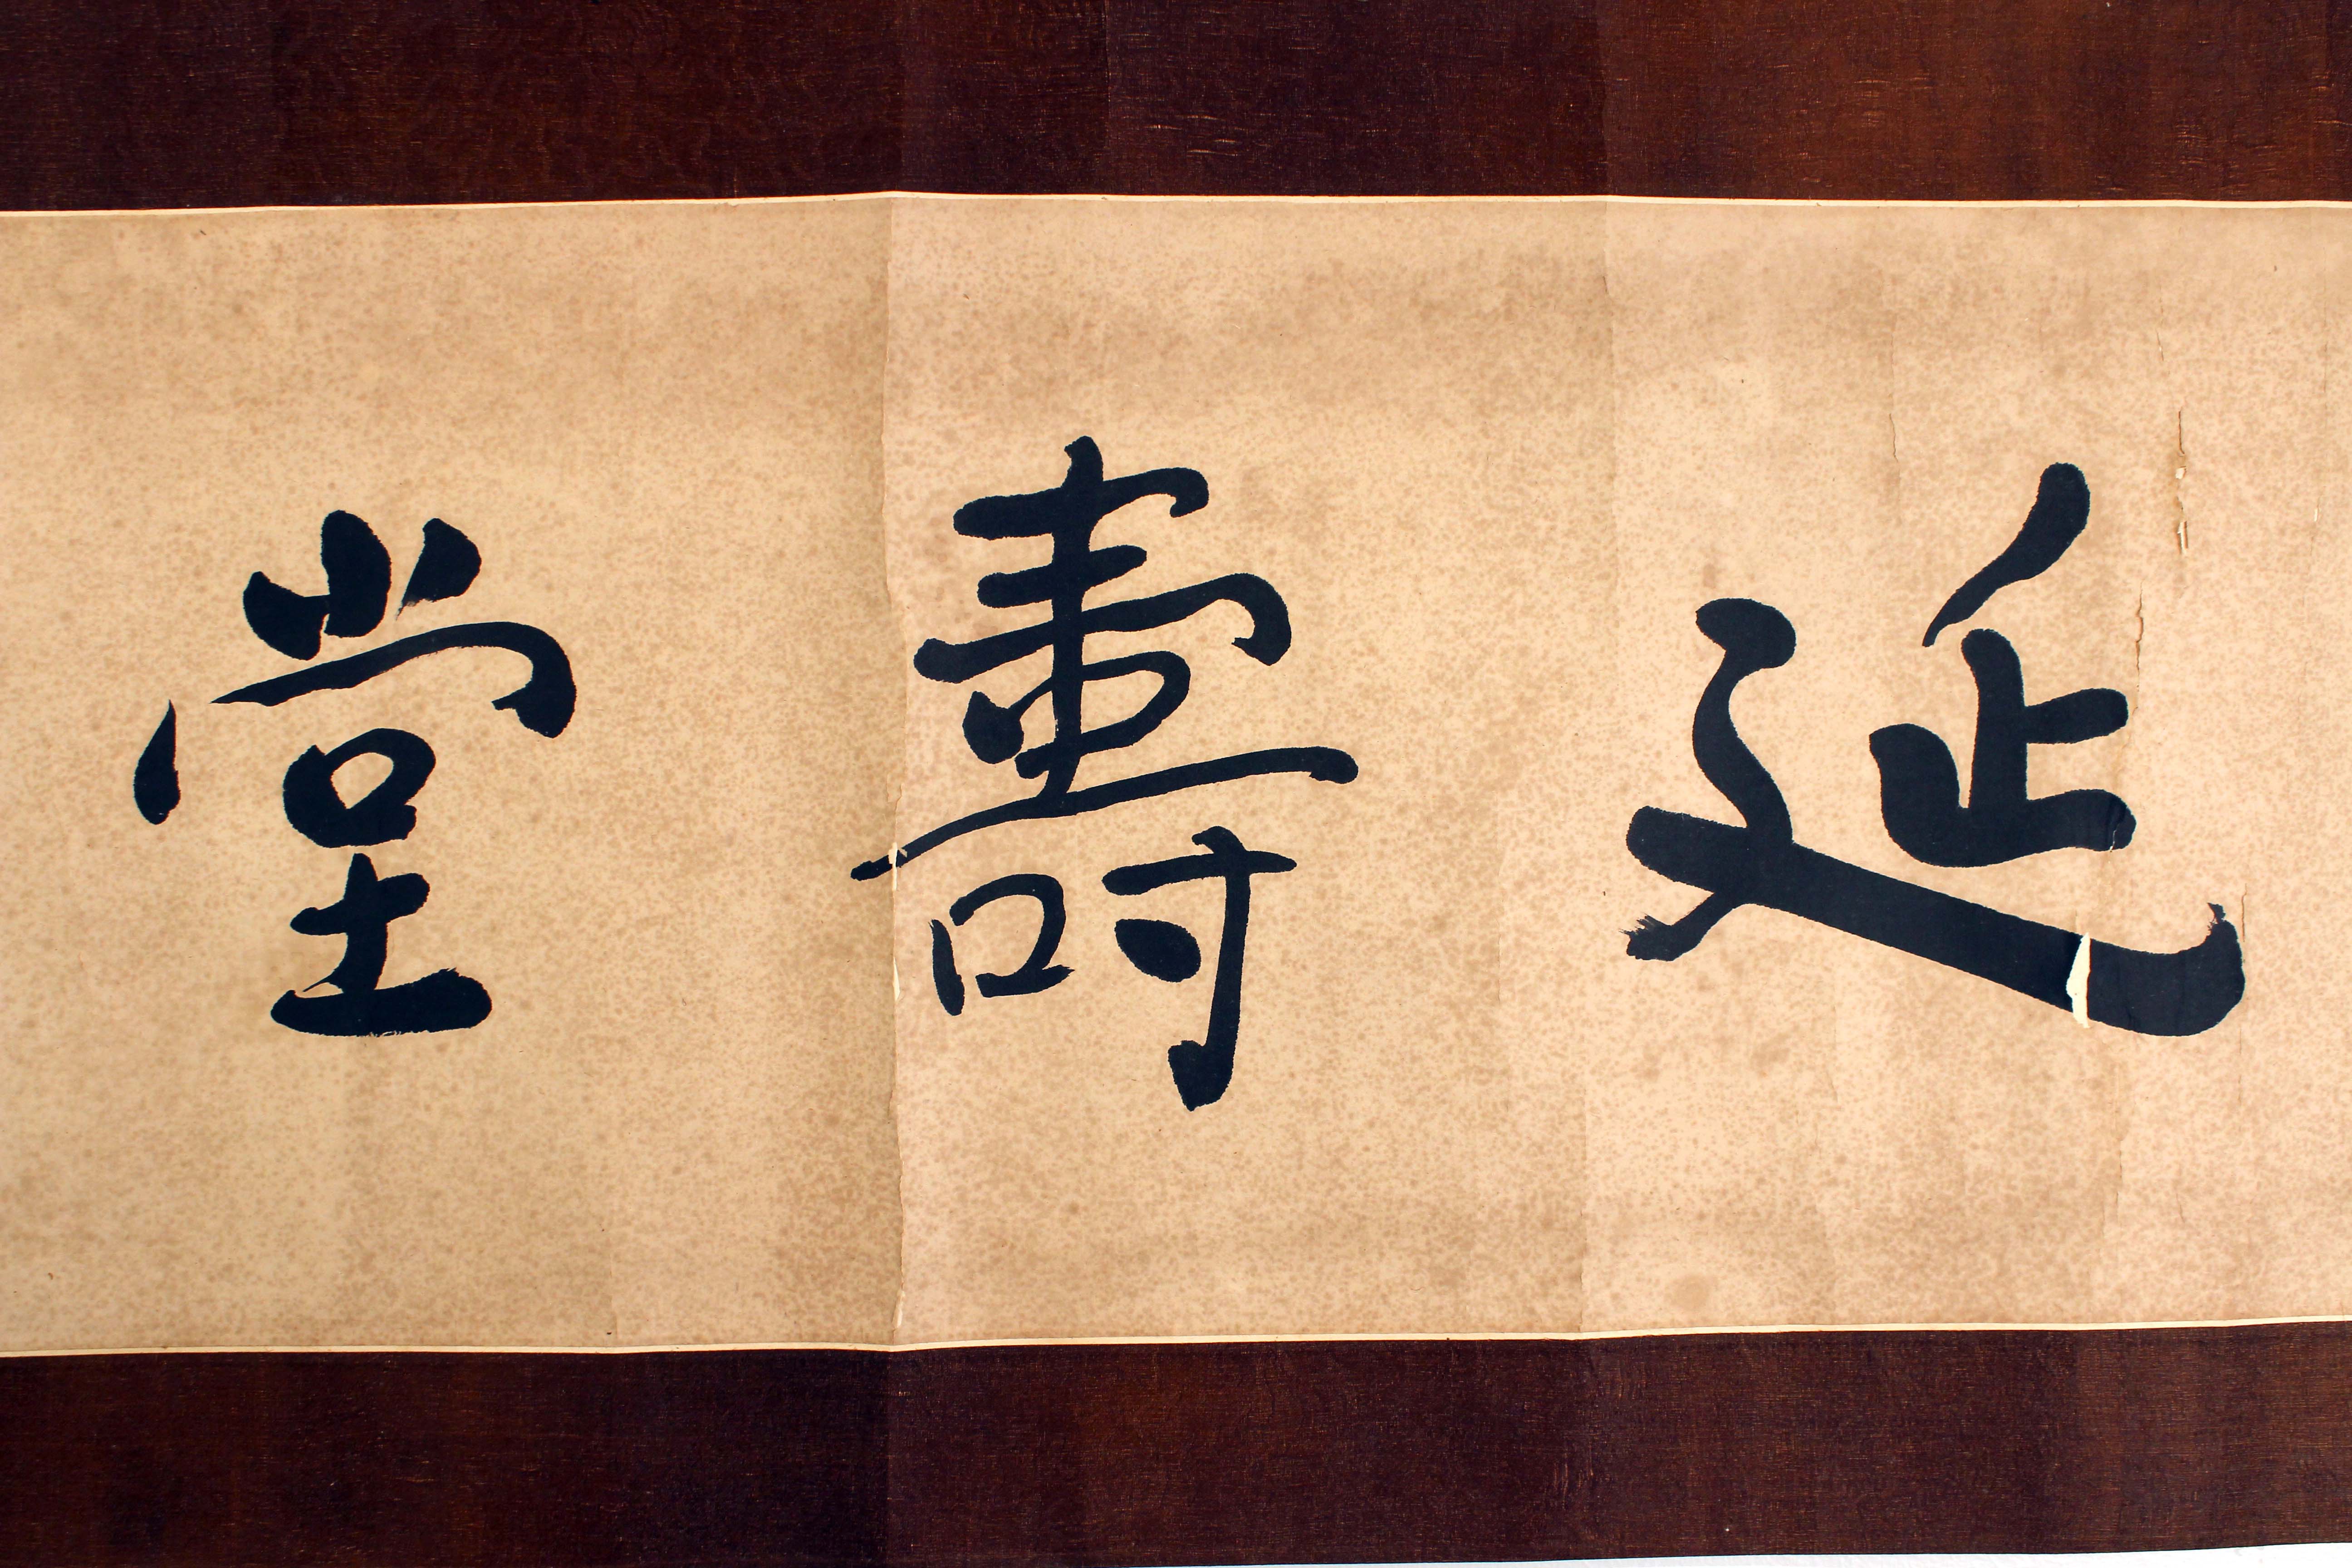 延壽堂